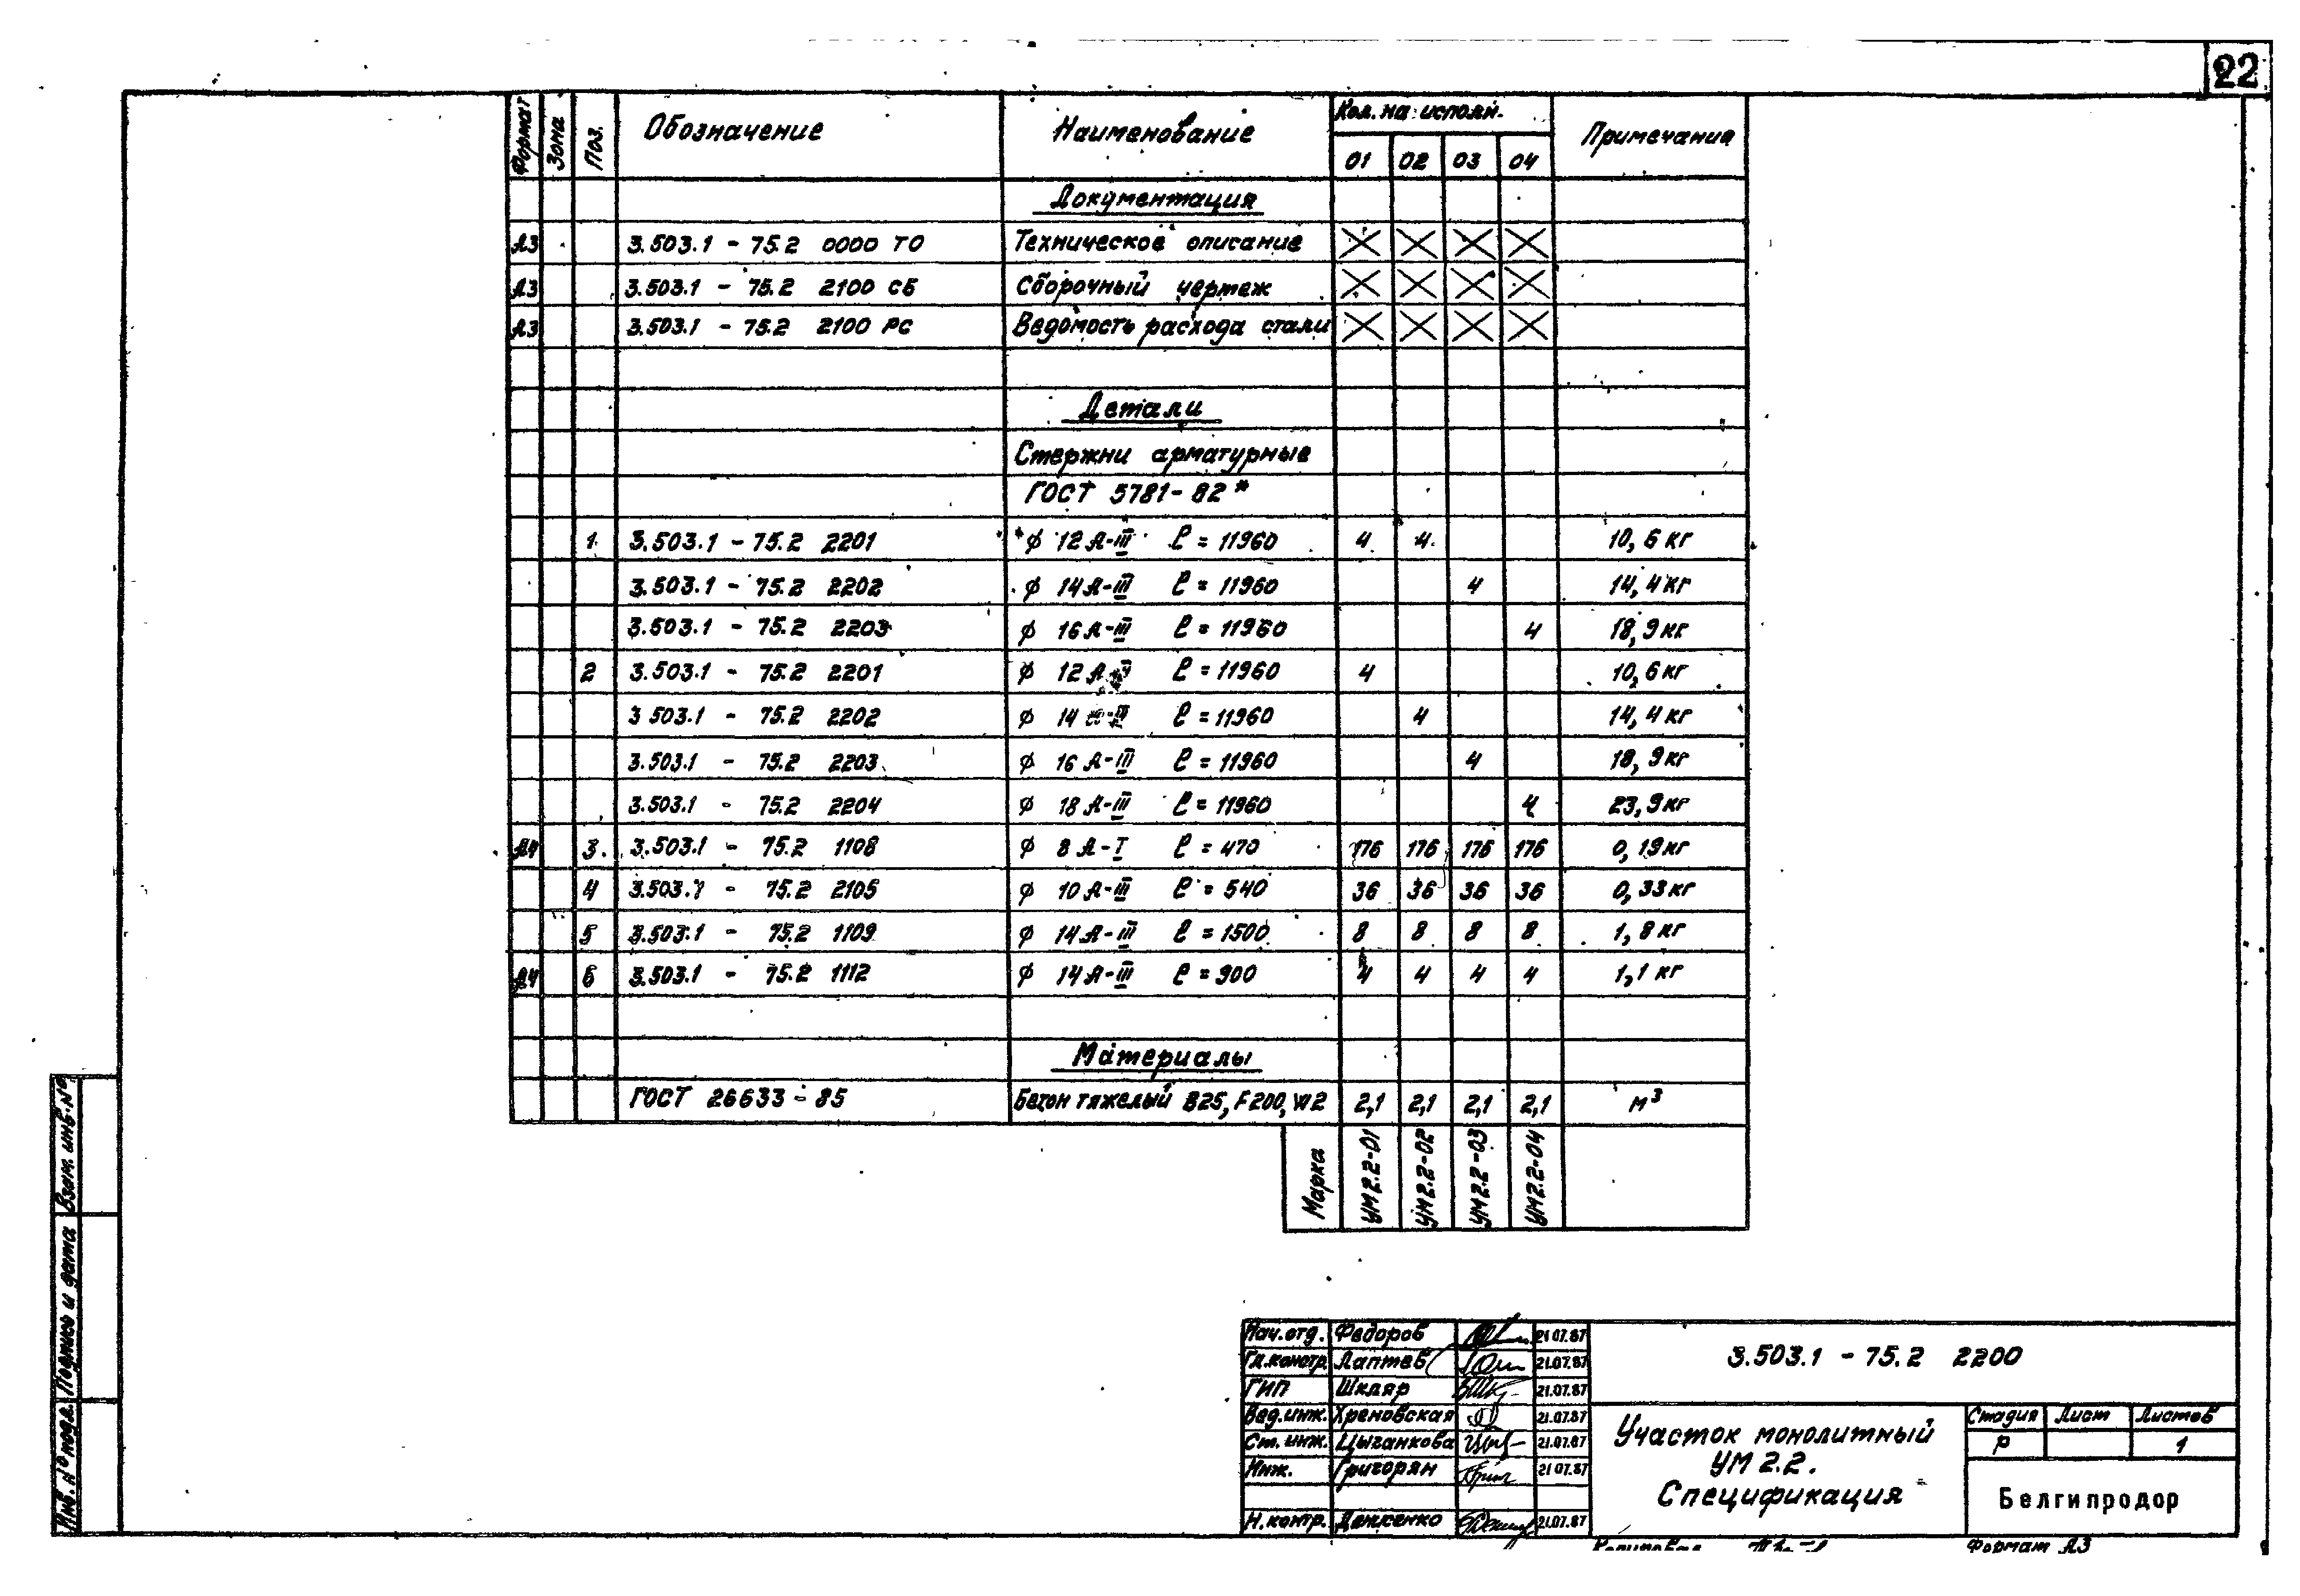 22
Формат Зона Поз. Обозначение Наименование Кол. на исполн. Примечание
01 02 03 04
Документация
А3 3.503.1 - 75.2 0000 ТО Техническое описание
А3 3.503.1 - 75.2 2100 СБ Сборочный чертеж
А3 3.503.1 - 75.2 2100 РС Ведомость расхода стали
Детали
Стержни арматурные
ГОСТ 5781-82*
1 3.503.1 - 75.2 2201 ϕ 12 А-III ℓ = 11960 4 4 10,6 кг
3.503.1 - 75.2 2202 ϕ 14 А-III ℓ = 11960 4 14,4 кг
3.503.1 - 75.2 2203 ϕ 16 А-III ℓ = 11960 4 18,9 кг
2 3.503.1 - 75.2 2201 ϕ 12 А ℓ = 11960 4 10,6 кг
3 503.1 - 75.2 2202 ϕ 14 ℓ = 11960 4 14,4 кг
3.503.1 - 75.2 2203 ϕ 16 А-III ℓ = 11960 4 18,9 кг
3.503.1 - 75.2 2204 ϕ 18 А-III ℓ = 11960 4 23,9 кг
А4 3. 3.503.1 - 75.2 1108 ϕ 8 А-I ℓ = 470 176 176 176 176 0,19 кг
4 3.503.1 - 75.2 2105 ϕ 10 А-III ℓ = 540 36 36 36 36 0,33 кг
5 3.503.1 - 75.2 1109 ϕ 14 А-III ℓ = 1500 8 8 8 8 1,8 кг
А4 6 3.503.1 - 75.2 1112 ϕ 14 А-III ℓ = 900 4 4 4 4 1,1 кг
Материалы
ГОСТ 26633-85 Бетон тяжелый В25, F200, W2 2,1 2,1 2,1 2,1 м³
Марка УМ2.2-01 УМ2.2-02 УМ2.2-03 УМ2.2-04
Инв. № подл. Подпись и дата Взам. инв. №
Нач. отд. Федоров 21 07.87
Гл. констр. Лаптев 21.07.87
ГИП Шкляр 21.07.87
Вед. инж. Хреновская 21.07.87
Ст. инж. Цыганкова 21.07.87
Инж. Григорян 21 07.87
Н. контр. Денисенко 21.07.87
3.503.1 - 75.2 2200
Участок монолитный
УМ 2.2.
Спецификация
Стадия Лист Листов
Р 1
Белгипродор
Формат А3